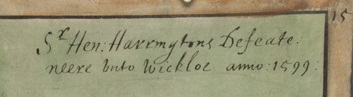 Sr Hen: Harrmgtons Defeate.
neere vnto Wickloe anno: 1599:
15